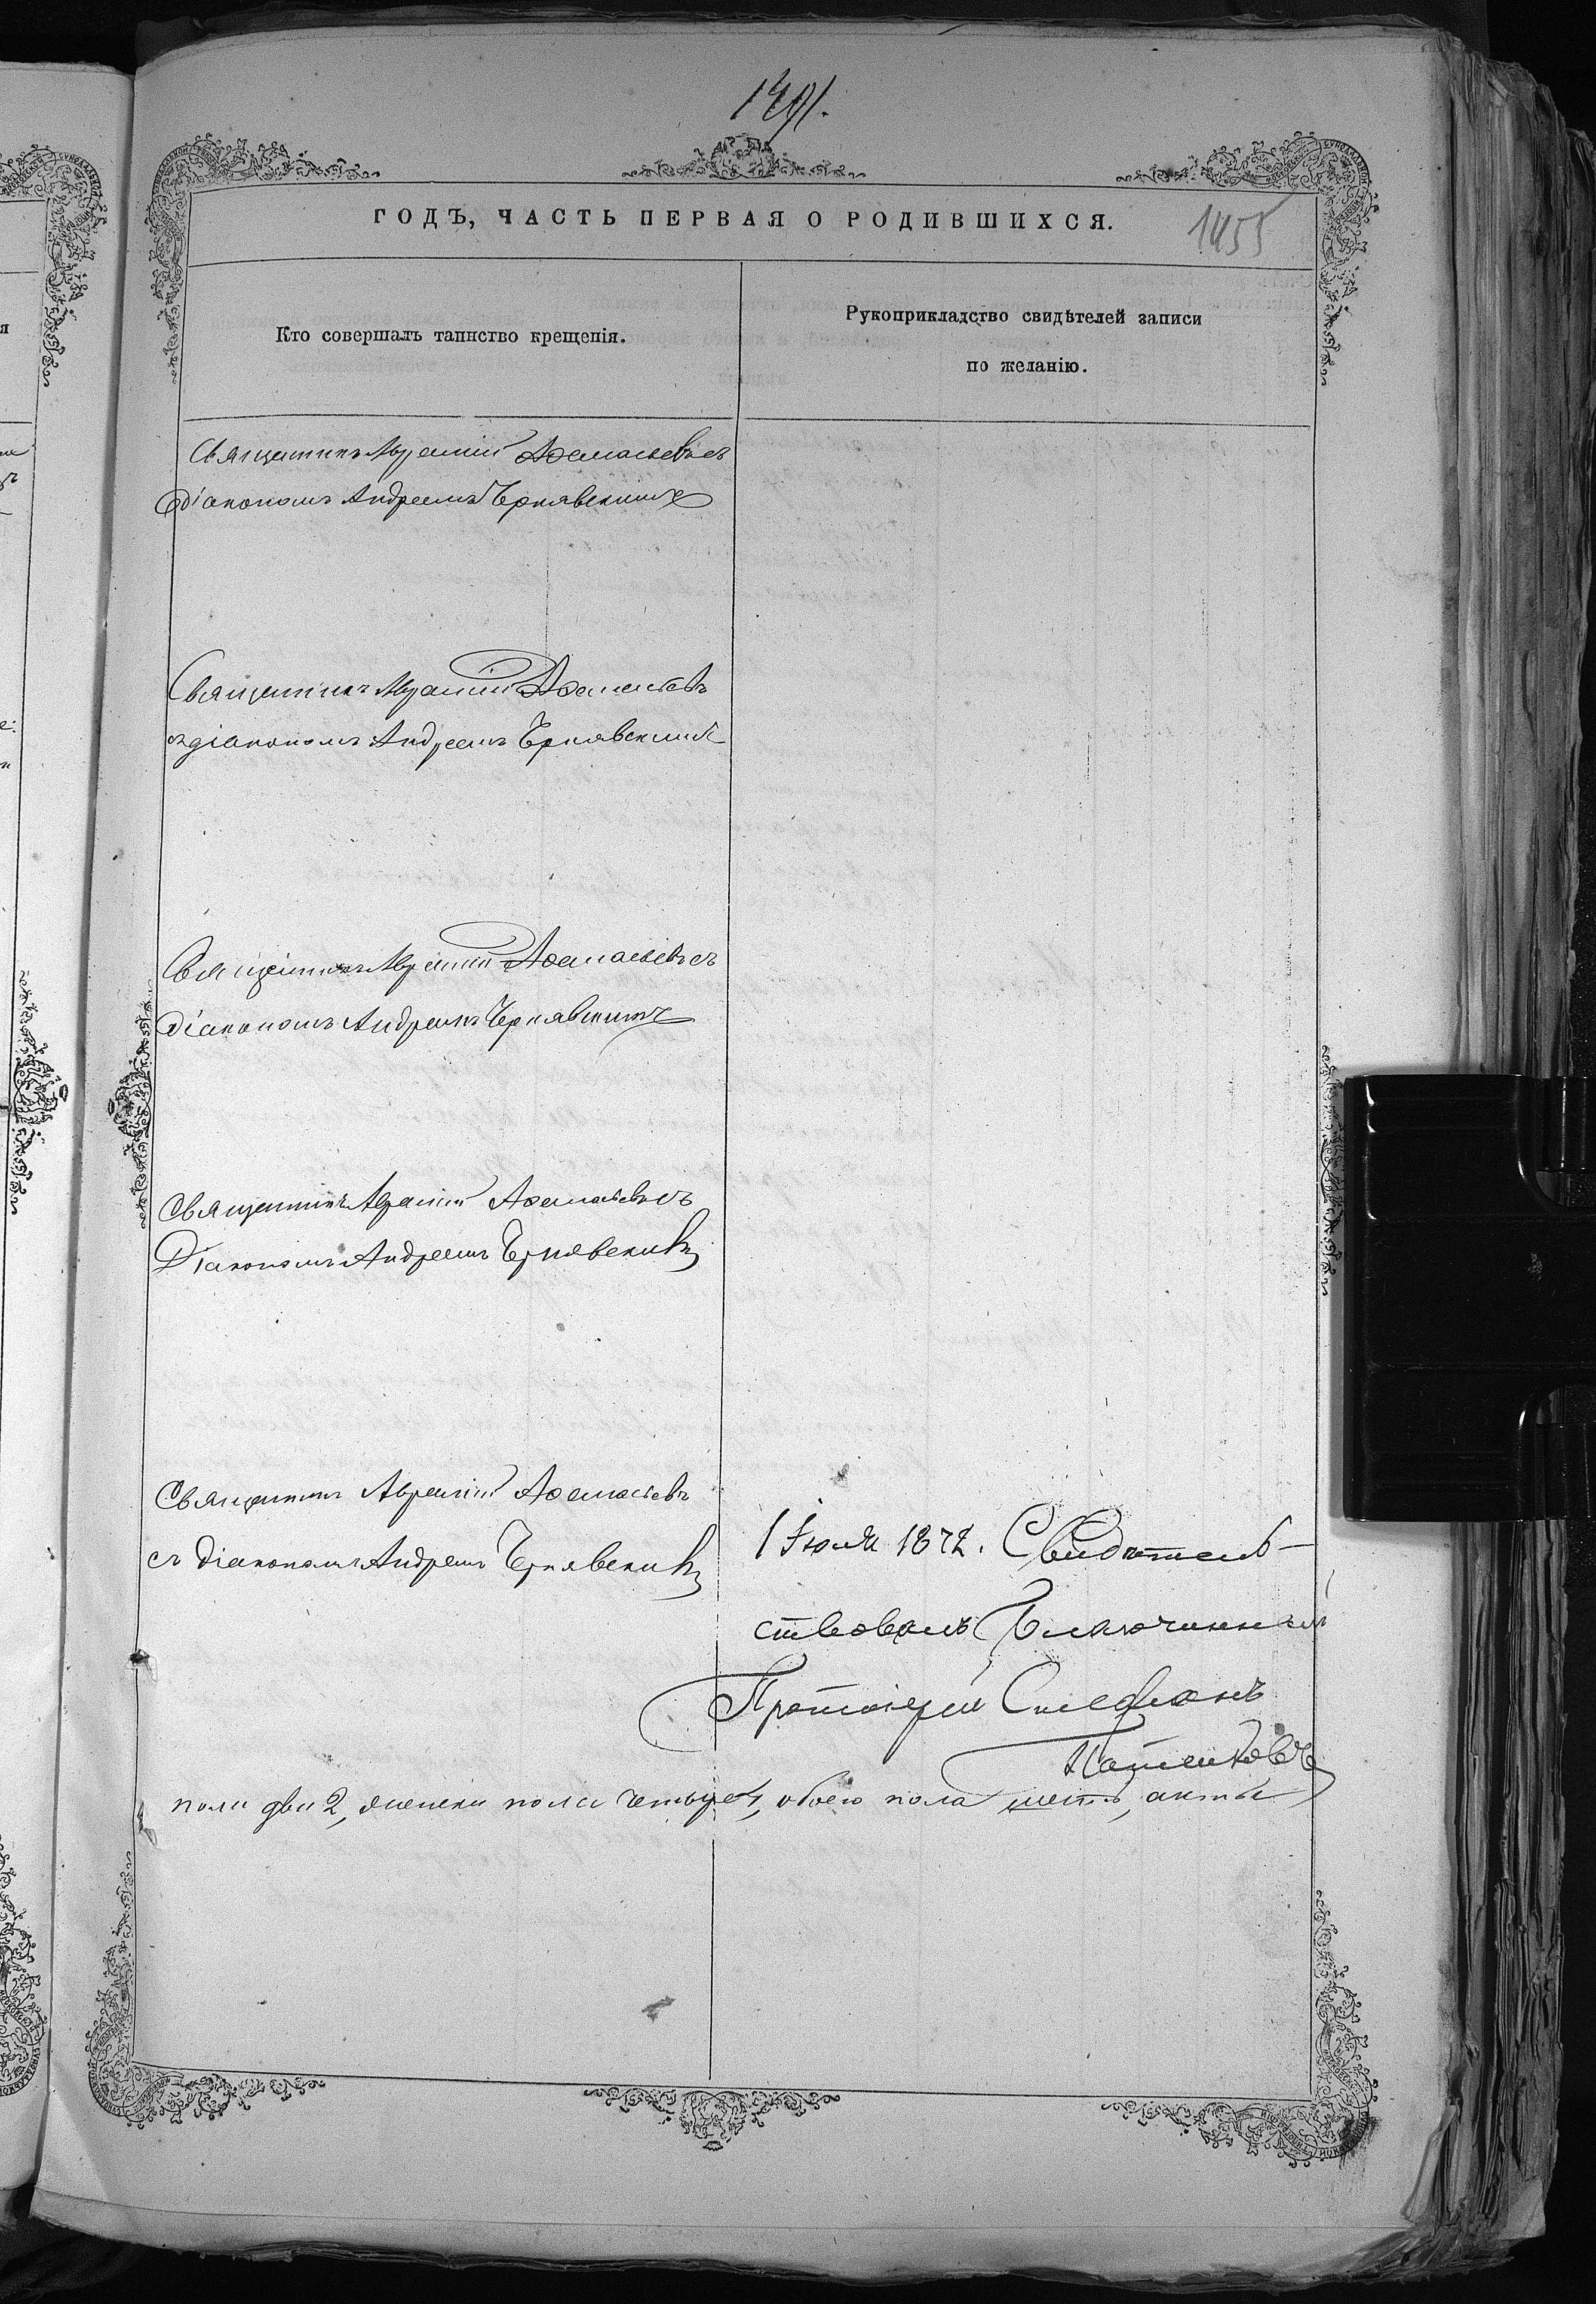 1491.
ГОДЪ, ЧАСТЬ ПЕРВАЯ О РОДИВШИХСЯ.
1455
Кто совершалъ таинство крещенія.
Рукоприкладство свидѣтелей записи
по желанію.
Священникъ Аврамій Аѳанасьевъ съ
діакономъ Андреемъ Чернявскимъ
Священникъ Аврамій Аѳанасьевъ
съ діакономъ Андреемъ Чернявскимъ
Священникъ Аврамій Аѳанасьевъ съ
діакономъ Андреемъ Чернявскимъ
Священникъ Аврамій Аѳанасьевъ съ
Діакономъ Андреемъ Чернявскимъ
Священникъ Аврамій Аѳанасьевъ
съ діакономъ Андреемъ Чернявскимъ
1 Іюля 1872. Свидѣтель-
ствовалъ Благочинный
Протоіерей Стефанъ
пола два 2, женска пола четыре 4, обоего пола шесть, акты